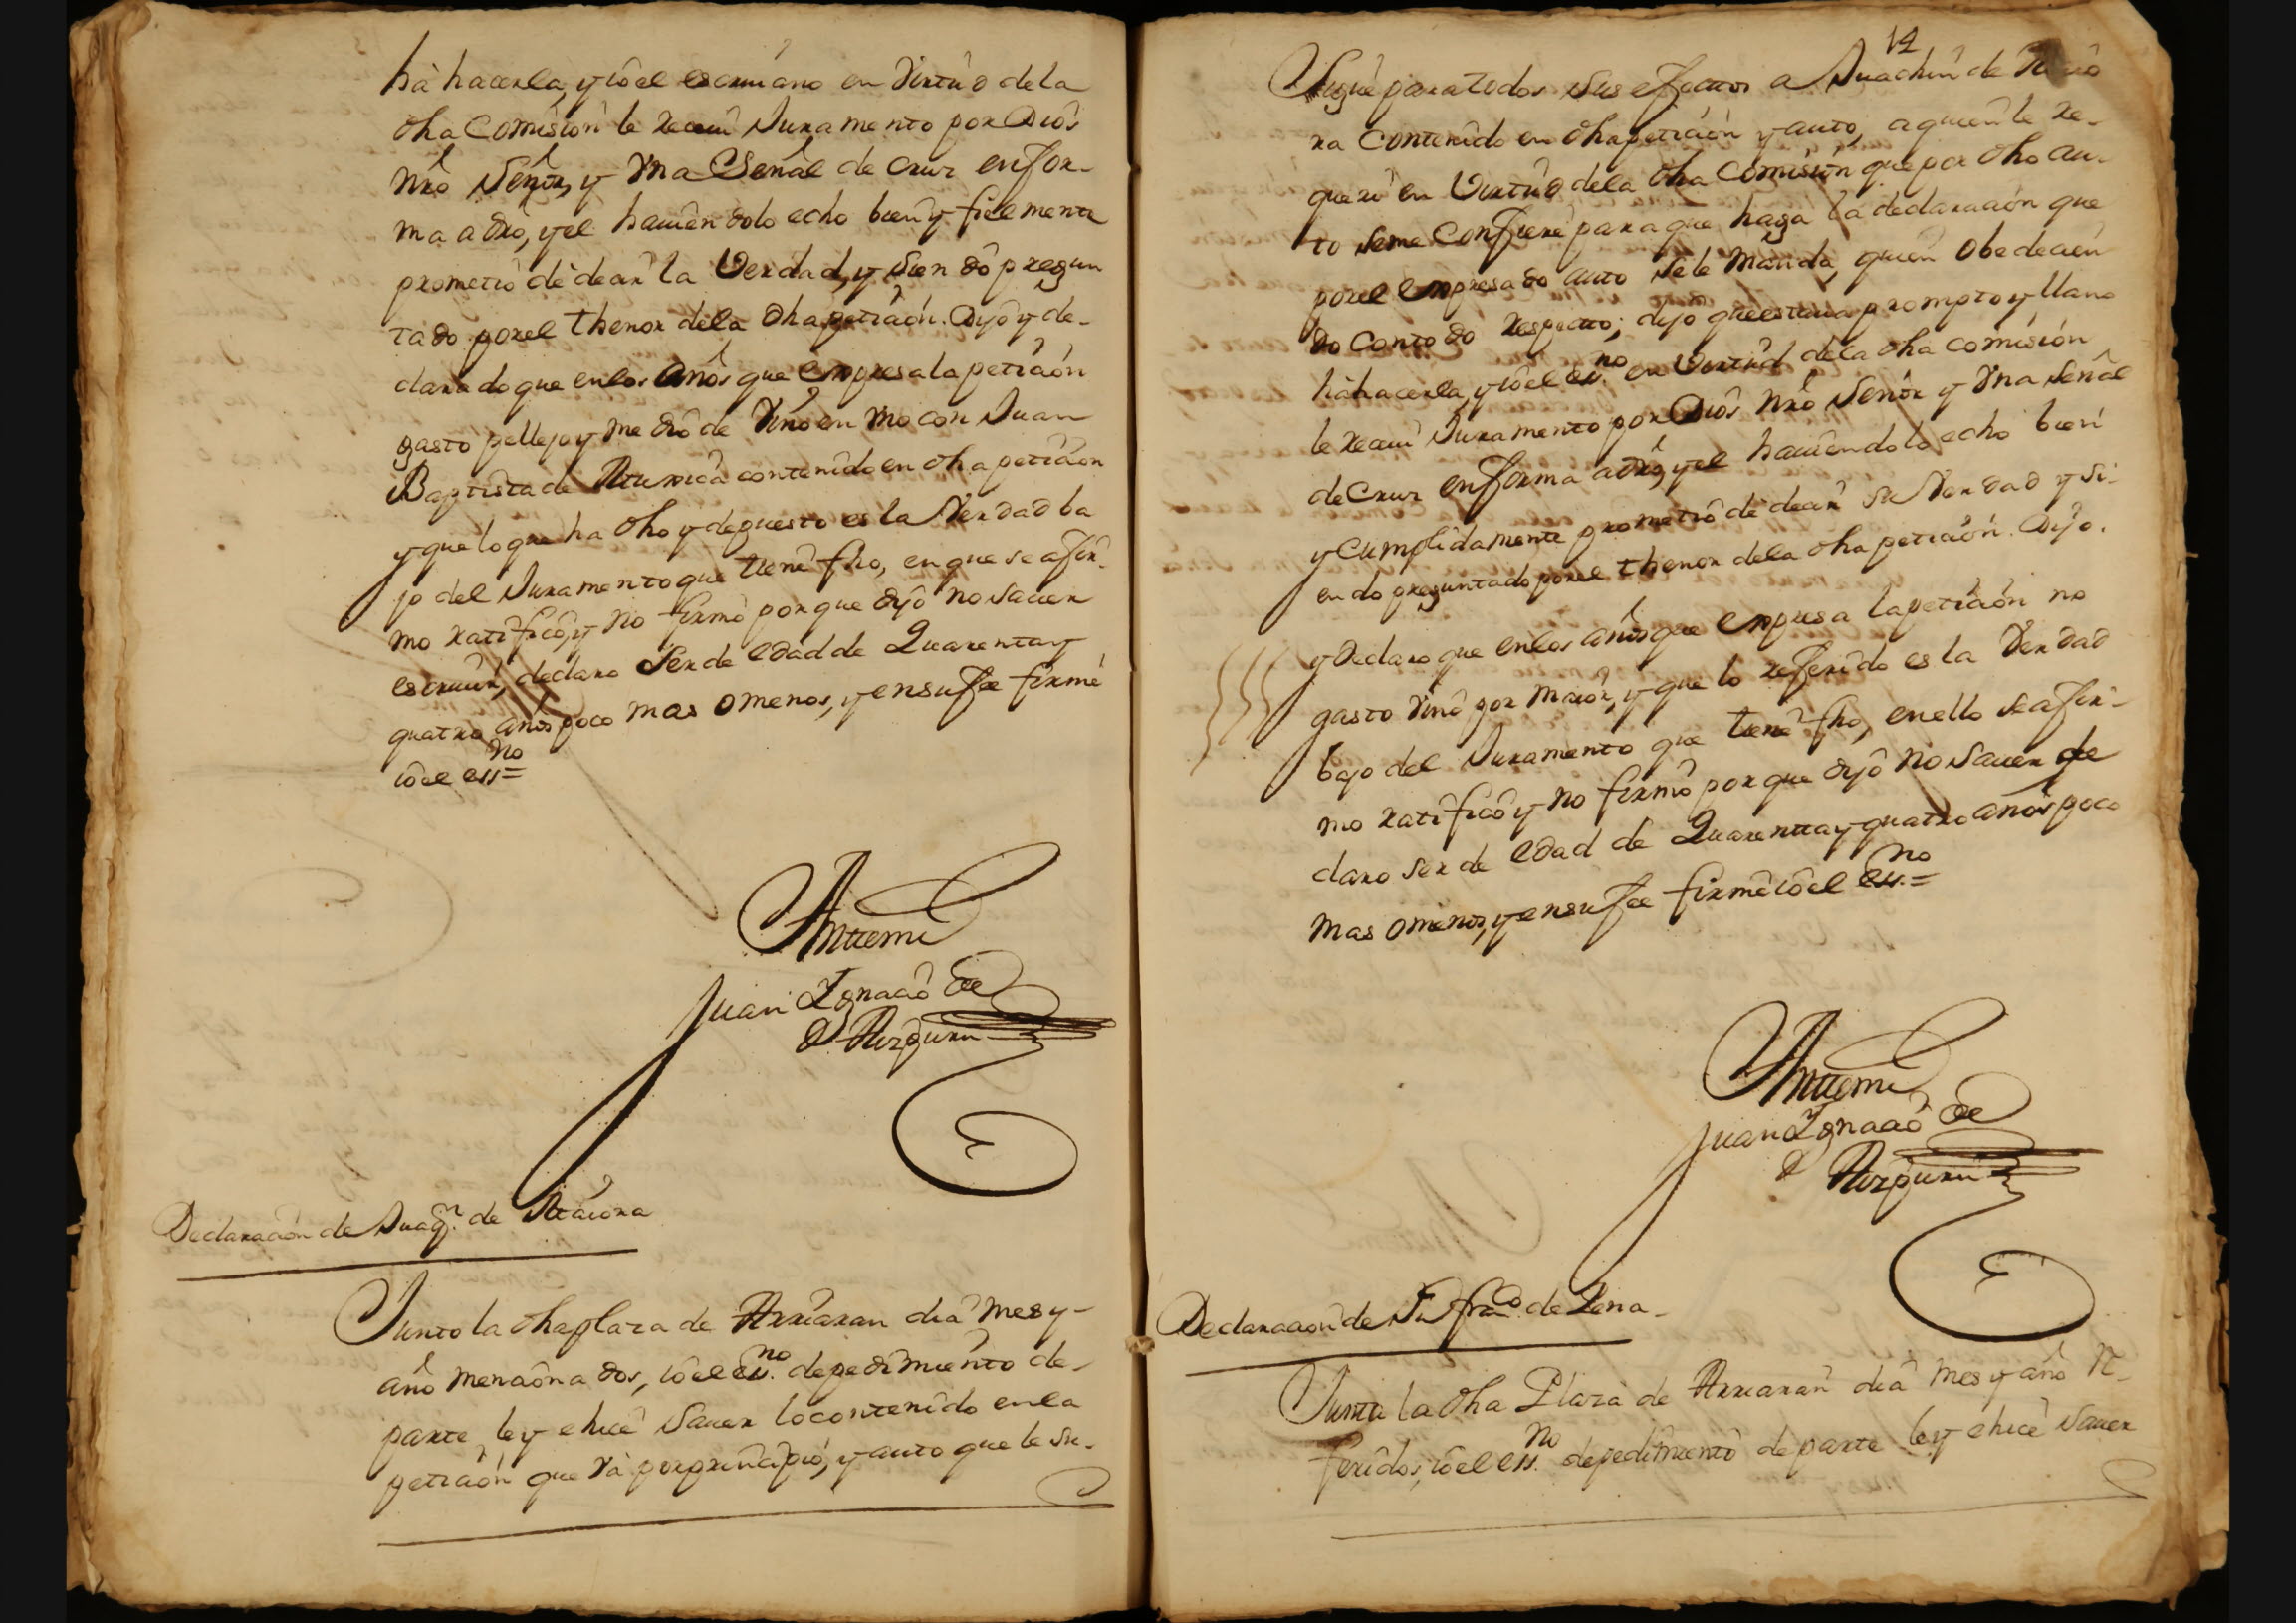 hà hacerla, y io el escriuano en Virtud de la
dha Comision le receui Juramento por Dios
nrô Señor, y Vna Señal de Cruz en for-
ma a drô, y el hauiendolo echo bien y fielmente
prometio de decir la Verdad, y siendo pregun
tado por el thenor de la dha petiçión. Dijo y de-
clarado que en los Años que expresa la petiçión
gasto pellejo y medio de Vino en vno con Juan
Baptista de Iturrioa contenido en dha petiçion
y que lo que ha dho y depuesto es la Verdad ba
jo del Juramento que tiene fho, en que se afir-
mo ratifico, y no firmo porque dijo no sauer
escriuir, declaro Ser de edad de Quarenta y
quatro años poco mas o menos, y en su fee firmé
io el essno=
Anttemi
Juan Ignacio de
Aizpuru
Declaración de Juaqn. de Ataiora
Junto la dha plaza de Arriaran dia mes y-
año mencionados, io el essno. de pedimiento de-
parte ley e hice Sauer lo contenido en la
petiçión que Và por prinçipio, y auto que le su-
14
Sigue para todos sus efectos a Juachin de
ra contenido en dha petiçión y auto, a quien le re-
queri en Virtud de la dha Comisión que por dho au-
to se me Confiere para que haga la declaraçión que
por el expresado auto se le manda, quien obedecien
do con todo respecto; dijo que estaua prompto y llano
hà hacerla, y io el essno. en Virtud de la dha comisión
le receui Juramento por Dios Nrô Señor y Vna señal
de Cruz en forma a drô, y el hauiendolo echo bien
y Cumplidamente prometio de decir su Verdad y si-
endo preguntado por el thenor de la dha petiçión. Dijo.
y Declaro que en los años que expresa la petiçión no
gasto Vino por maior, y que lo referido es la Verdad
bajo del Juramento que tiene fho, en ello se afir-
mo ratifico y no firmo porque dijo no Sauer de
claro ser de edad de Quarenta y quatro años poco
mas o menos, y en su fee firme io el essno.=
Anttemi
Juan Ignacio de
Aizpuru
Declaraçión de Jn franco. de Lena-
Junto la dha Plaza de Arriaran dia mes y año Re-
feridos, io el essno. de pedimiento de parte ley e hice Sauer